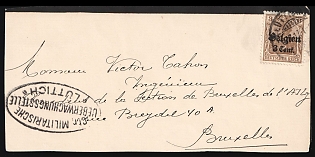 Belgien
3 Cent.
Monsieur Victor Tahon
Ingénieur
de la Section de Bruxelles de l'A.I.Lg
Rue Breydel 40 A
Bruxelles
MILITÄRISCHE
ÜBERWACHUNGSSTELLE
LÜTTICH